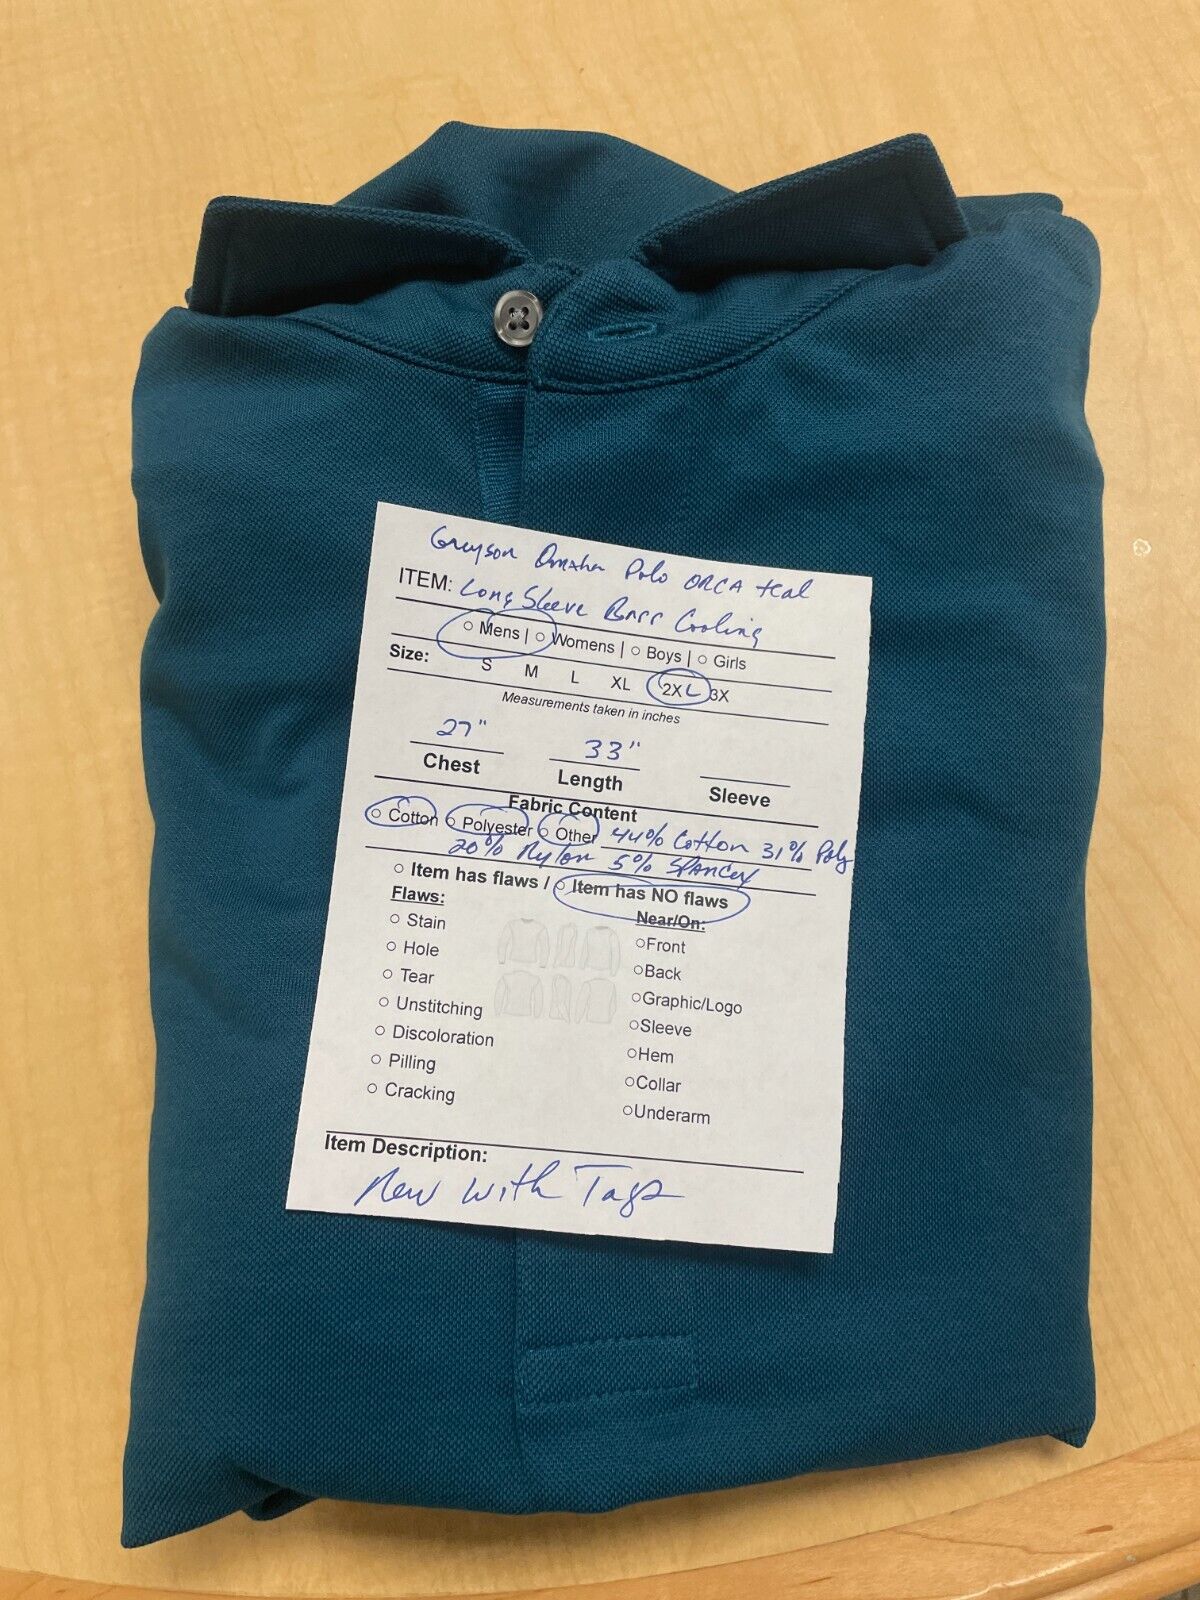 Greyson Omaha Polo ORCA teal
ITEM: Long Sleeve Basr Cooling
○ Mens | ○ Womens | ○ Boys | ○ Girls
Size: S M L XL 2XL 3X
Measurements taken in inches
27" 33"
Chest Length Sleeve
Fabric Content
○ Cotton ○ Polyester ○ Other 44% Cotton 31% Poly
20% Nylon 5% Spandex
○ Item has flaws / ○ Item has NO flaws
Flaws: Near/On:
○ Stain ○Front
○ Hole ○Back
○ Tear ○Graphic/Logo
○ Unstitching ○Sleeve
○ Discoloration ○Hem
○ Pilling ○Collar
○ Cracking ○Underarm
Item Description:
New with Tags